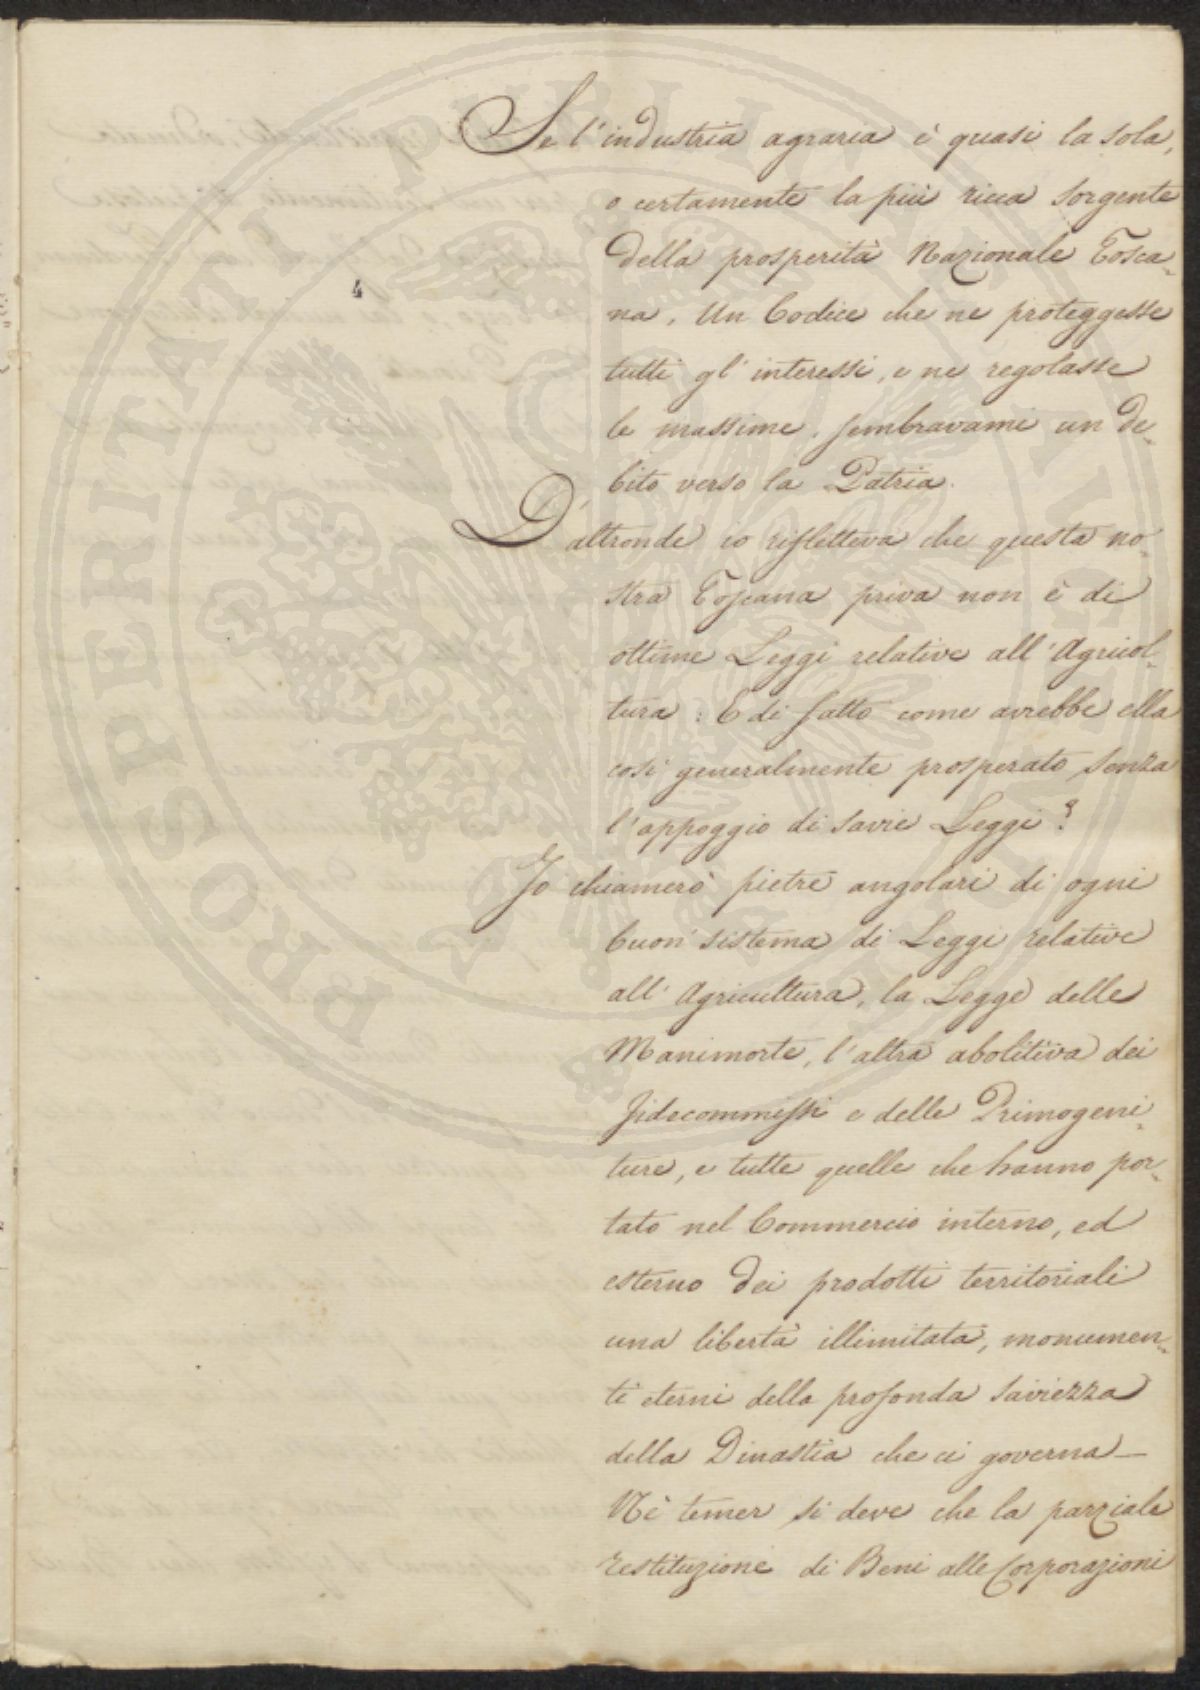 Se l'industria agraria è quasi la sola,
o certamente la più ricca sorgente
della prosperità Nazionale Tosca-
na, Un Codice che ne proteggesse
4
tutti gl'interessi, e ne regolasse
le massime, sembravami un de-
bito verso la Patria.
D'altronde io rifletteva che questa no-
stra Toscana priva non è di
ottime Leggi relative all'Agricol-
tura: E di fatto come avrebbe ella
così generalmente prosperato senza
l'appoggio di savie Leggi?
Io chiamerò pietre angolari di ogni
buon sistema di Leggi relative
all'Agricultura, la Legge delle
Manimorte, l'altra abolitiva dei
Fidecommissi e delle Primogeni-
ture, e tutte quelle che hanno por-
tato nel Commercio interno, ed
esterno dei prodotti territoriali
una libertà illimitata, monumen-
ti eterni della profonda saviezza
della Dinastia che ci governa —
Nè temer si deve che la parziale
restituzione di Beni alle Corporazioni
PROSPERITATI PUBLICAE